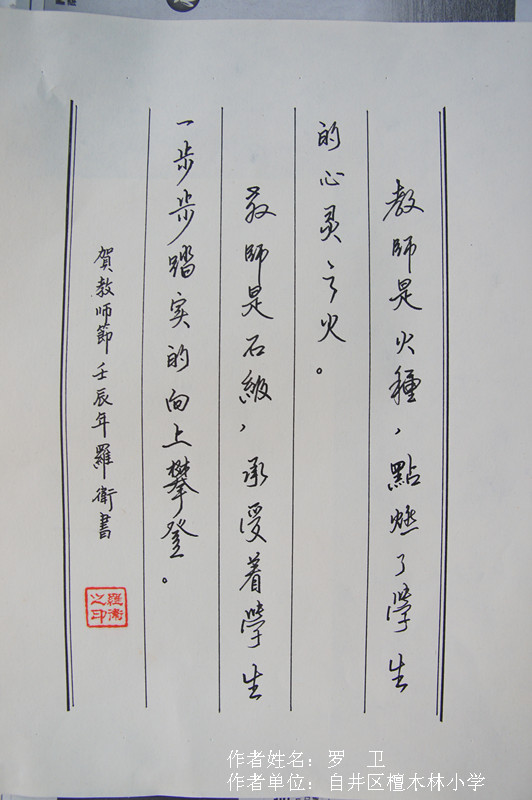 教師是火種，點燃了學生
的心灵之火。
教師是石級，承受着學生
一步步踏实的向上攀登。
賀教师節壬辰年羅衛書
羅衛之印
作者姓名：罗 卫
作者单位：自井区檀木林小学